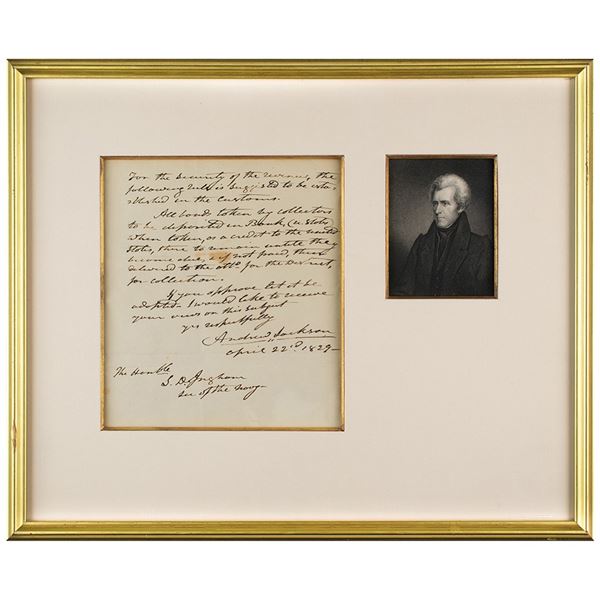 For the security of the revenue, the
following rule is suggested to be esta-
blished in the customs.
All bonds taken by collectors
to be deposited in Bank, (U States)
when taken, as a credit to the united
States, there to remain untill they
become due, & if not paid, then
delivered to the atty. for the District,
for collection.
If you approve let it be
adopted I would like to receive
your views on this subject
yrs respectfully
Andrew Jackson
april 22d. 1829-
The Honble
S. D. Ingham
sec of the Treay